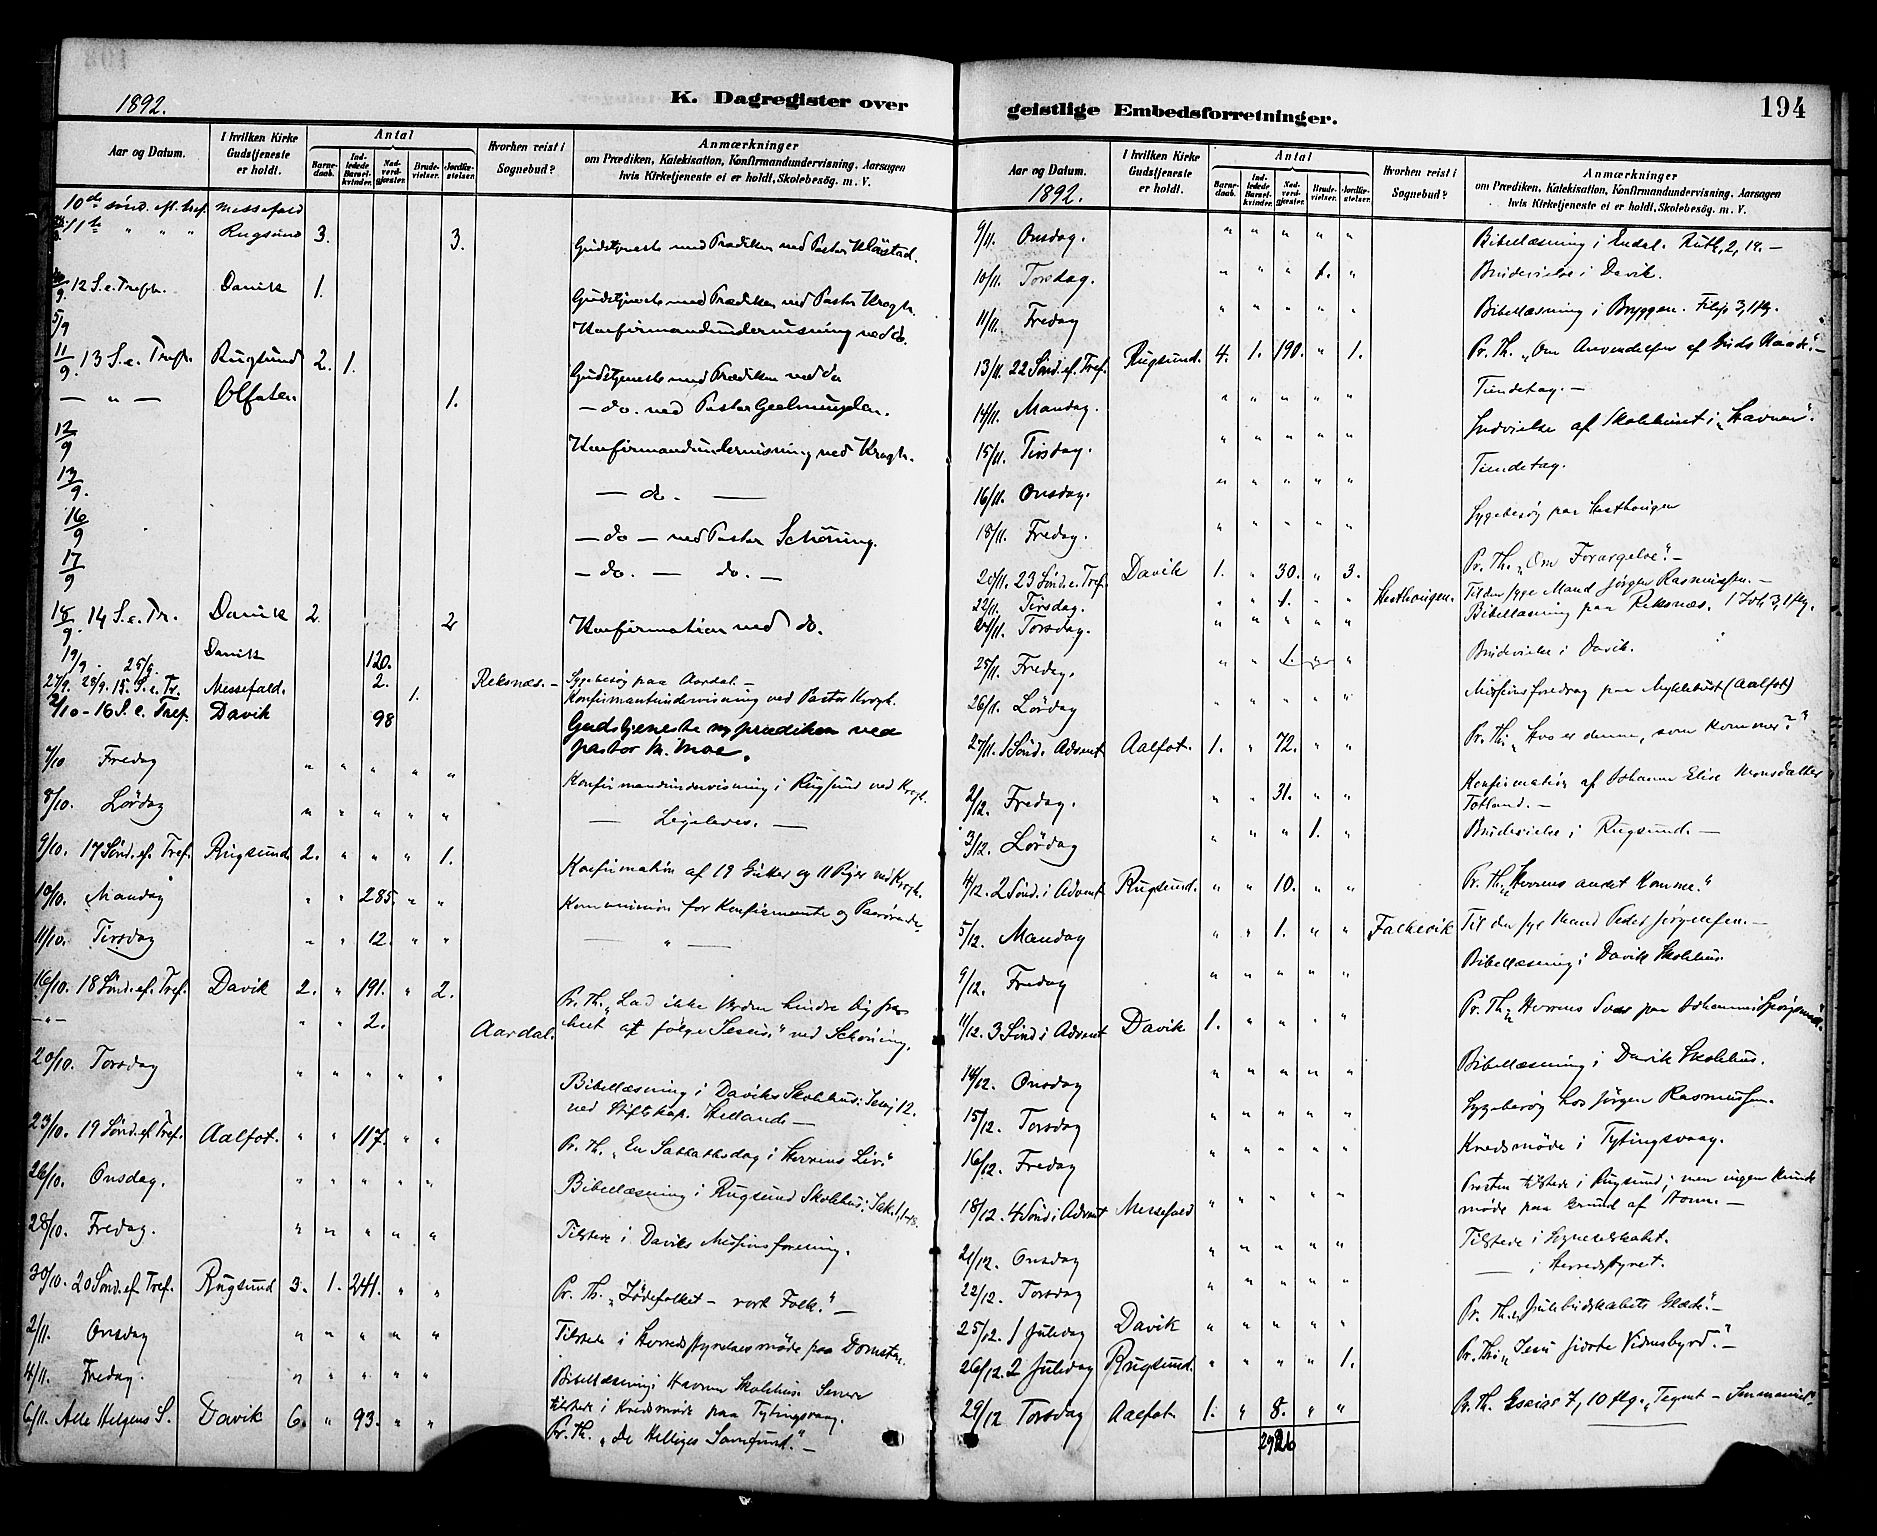 1892.
K. Dagregister over
Aar og Datum.
I hvilken Kirke Gudstjeneste er holdt.
Antal
Barne-daab.
Ind-ledede Barsel-kvinder.
Nad-verd-gjæster.
Brude-vielser.
Jordfæ-stelser.
Hvorhen reist i Sognebud?
Anmærkninger
om Prædiken, Katekisation, Konfirmandundervisning, Aarsagen
hvis Kirketjeneste ei er holdt, Skolebesøg. m. V.
10de sønd. eft. tref. Messefald
11te " " " Rugsund 3. 3. Gudstjeneste med Prædiken ved Pastor Klæstad.
9. 12 S. e. Trefh. Davik 1. Gudstjeneste med Prædiken ved Pastor Krogh.
5/9 Konfirmandundervisning ved do.
11/9. 13 S. e. Trefh. Rugsund 2. 1. Gudstjeneste med Prædiken ved do
— " — Olfoten 1. — do. ved Pastor Geelmuyden.
12/9 Konfirmandundervisning ved Krogh.
13/9. — do. —
16/9 — do — ved Pastor Schøning.
17/9 — do. — do. —
18/9. 14 S. e. Tr. Davik 2. 2 Konfirmation ved do.
19/9. Davik 120.
27/9. 28/9. 25/9. 15. S. e. Tr. Messefald. 2. 1. Reksnæs. — Sygebesøg paa Aardal. —
Konfirmantundervisning ved Pastor Krogh.
2/10 - 16 S. e. Tref. Davik 98 Gudstjeneste m prædiken ved
pastor M. Moe.
7/10 Fredag " " " " " Konfirmandundervisning i Rugsund ved Krogh.
8/10. Lørdag " " " " " — Ligeledes. —
9/10. 17 Sønd. ef. Tref. Rugsund. 2. " " " 1. Konfirmation af 19 Gutter og 11 Piger ved Krogh.
10/10. Mandag " " 285. " " Kommunion for Konfirmante og Paarørende.
11/10. Tirsdag " " 12. " " — " —
16/10. 18 Sønd. ef. Tref. Davik 2. " 191. " 2. Pr. Th. "Lad ikke Verden hindre Dig fra
— " — " " 2. Aardal. helt at følge Jesus." ved Schøning.
20/10. Torsdag " " " " " Bibellæsning i Daviks Skolehus: Joh 12.
ved Stiftskap. Hellands —
23/10. 19 Sønd. ef. Tref. Aalfot. " " 117. " " Pr. Th. "En Sabbathsdag i Herrens Liv."
26/10. Onsdag. " " " " " Bibellæsning i Rugsund Skolehus:
28/10. Fredag. " " " " " Tilstede i Daviks Missionsforening.
30/10. 20 Sønd. ef. Tref. Rugsund 3. 1. 241. " " Pr. Th. "Jødefolket — vort Folk." —
2/11. Onsdag " " " " " Tilstede i Herredsstyrelsesmøde paa Domsten.
4/11. Fredag. " " " " " Bibellæsning i Havnen Skolehus. Senere
tilstede i Kredsmøde paa Tytingsvaag.
6/11. Alle Helgens S. Davik 6. " 93. " " Pr. Th. "De Helliges Samfund." —
geistlige Embedsforretninger.
194
Aar og Datum.
1892.
I hvilken Kirke Gudstjeneste er holdt.
Antal
Barne-daab.
Ind-ledede Barsel-kvinder.
Nad-verd-gjæster.
Brude-vielser.
Jordfæ-stelser.
Hvorhen reist i Sognebud?
Anmærkninger
om Prædiken, Katekisation, Konfirmandundervisning, Aarsagen
hvis Kirketjeneste ei er holdt, Skolebesøg. m. V.
9/11. Onsdag. " " " " " Bibellæsning i Endal. Ruth, 2, 19. —
10/11. Torsdag. " " " 1. " Brudevielse i Davik.
11/11. Fredag " " " " " Bibellæsning i Bryggen. Filip 3, 1 flg.
13/11. 22 Sønd. ef. Tref. Rugsund. 4. 1. 190. " 1. Pr. Th. "Om Anvendelsen af Guds Naade." —
14/11. Mandag. " " " " " Tiendetag. —
15/11. Tirsdag. " " " " " Indvielse af Skolehuset i "Havnen".
16/11. Onsdag. " " " " " Tiendetag.
18/11. Fredag. " " " " " Sygebesøg paa Hesthougen
20/11. 23 Sønd. e. Tref. Davik 1. " 30. " 3. Pr. Th. "Om Forargelse." —
22/11. Tirsdag. " " 1. " " Hesthougen. Til den syge Mand Jørgen Rasmussen. —
24/11. Torsdag. " " " " " Bibellæsning paa Reksnæs. 1 Joh 3, 1 flg.
25/11. Fredag. " " 1. " " Brudevielse i Davik.
26/11. Lørdag " " " " " Missionsforedrag paa Myklebust (Aalfot)
27/11. 1 Sønd. Advent Aalfot. 1. " 72. " " Pr. Th. "Hvo er denne, som kommer?"
2/12. Fredag. " " 31. " " Konfirmation af Johanne Elise Monsdatter
Totland. —
3/12. Lørdag " " " 1. " Brudevielse i Rugsund. —
4/12. 2 Sønd. i Advent Rugsund. " " 10. " " Pr. Th. "Herrens andet Komme."
5/12. Mandag " " 1. " " Falkevik Til den syge Mand Peder Jørgensen. —
9/12. Fredag " " " " " Bibellæsning i Davik Skolehus.
11/12. 3 Sønd i Advent Davik 1. " " " " Pr. Th. "Herrens Svar paa Johannis Spørgsmaal."
14/12. Onsdag " " " " " Bibellæsning i Davik Skolehus.
15/12. Torsdag " " " " " Sygebesøg hos Jørgen Rasmussen.
16/12. Fredag " " " " " Kredsmøde i Tytingsvaag.
18/12. 4 Sønd i Advent Messefald " " " " " Præsten tilstede i Rugsund; men ingen kunde
møde paa Grund af Storm. —
21/12. Onsdag " " " " " Tilstede i Sogneselskabet.
22/12. Torsdag " " " " " — i Herredsstyret.
25/12. 1 Juledag Davik " " " " " Pr. Th. "Julebudskabets Glæde." —
26/12. 2 Juledag Rugsund. " " " " 1. Pr. Th. "Jesu sidste Vidnesbyrd." —
29/12 Torsdag Aalfot. 1. " 8. " " Pr. Th. Esaias 7, 10 flg. "Tegnet — Immanuel".